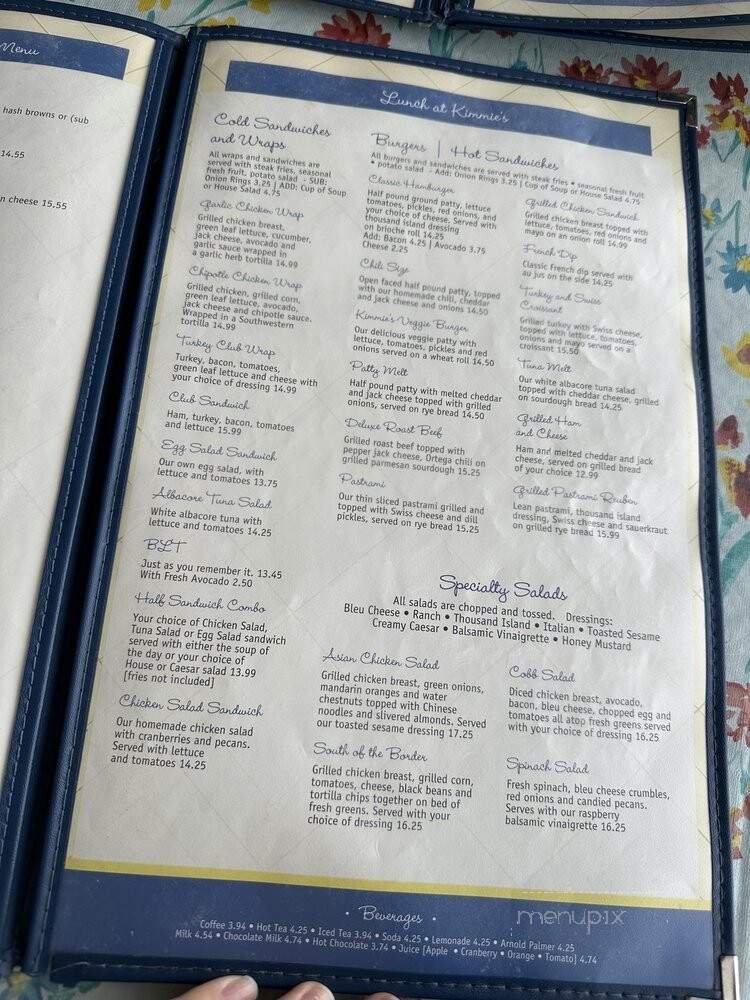 Menu
hash browns or (sub
14.55
n cheese 15.55
Lunch at Kimmie's
Cold Sandwiches
and Wraps
All wraps and sandwiches are
served with steak fries, seasonal
fresh fruit, potato salad - SUB:
Onion Rings 3.25 | ADD: Cup of Soup
or House Salad 4.75
Garlic Chicken Wrap
Grilled chicken breast,
green leaf lettuce, cucumber,
jack cheese, avocado and
garlic sauce wrapped in
a garlic herb tortilla 14.99
Chipotle Chicken Wrap
Grilled chicken, grilled corn,
green leaf lettuce, avocado,
jack cheese and chipotle sauce.
Wrapped in a Southwestern
tortilla 14.99
Turkey Club Wrap
Turkey, bacon, tomatoes,
green leaf lettuce and cheese with
your choice of dressing 14.99
Club Sandwich
Ham, turkey, bacon, tomatoes
and lettuce 15.99
Egg Salad Sandwich
Our own egg salad, with
lettuce and tomatoes 13.75
Albacore Tuna Salad
White albacore tuna with
lettuce and tomatoes 14.25
BLT
Just as you remember it. 13.45
With Fresh Avocado 2.50
Half Sandwich Combo
Your choice of Chicken Salad,
Tuna Salad or Egg Salad sandwich
served with either the soup of
the day or your choice of
House or Caesar salad 13.99
[fries not included]
Chicken Salad Sandwich
Our homemade chicken salad
with cranberries and pecans.
Served with lettuce
and tomatoes 14.25
Burgers | Hot Sandwiches
All burgers and sandwiches are served with steak fries • seasonal fresh fruit
• potato salad - Add: Onion Rings 3.25 | Cup of Soup or House Salad 4.75
Classic Hamburger
Half pound ground patty, lettuce
tomatoes, pickles, red onions, and
your choice of cheese. Served with
thousand island dressing
on brioche roll 14.25
Add: Bacon 4.25 | Avocado 3.75
Cheese 2.25
Chili Size
Open faced half pound patty, topped
with our homemade chili, cheddar
and jack cheese and onions 14.50
Kimmie's Veggie Burger
Our delicious veggie patty with
lettuce, tomatoes, pickles and red
onions served on a wheat roll 14.50
Patty Melt
Half pound patty with melted cheddar
and jack cheese topped with grilled
onions, served on rye bread 14.50
Deluxe Roast Beef
Grilled roast beef topped with
pepper jack cheese, Ortega chili on
grilled parmesan sourdough 15.25
Pastrami
Our thin sliced pastrami grilled and
topped with Swiss cheese and dill
pickles, served on rye bread 15.25
Grilled Chicken Sandwich
Grilled chicken breast topped with
lettuce, tomatoes, red onions and
mayo on an onion roll 14.99
French Dip
Classic French dip served with
au jus on the side 14.25
Turkey and Swiss
Croissant
Grilled turkey with Swiss cheese,
topped with lettuce, tomatoes,
onions and mayo served on a
croissant 15.50
Tuna Melt
Our white albacore tuna salad
topped with cheddar cheese, grilled
on sourdough bread 14.25
Grilled Ham
and Cheese
Ham and melted cheddar and jack
cheese, served on grilled bread
of your choice 12.99
Grilled Pastrami Reuben
Lean pastrami, thousand island
dressing, Swiss cheese and sauerkraut
on grilled rye bread 15.99
Specialty Salads
All salads are chopped and tossed. Dressings:
Bleu Cheese • Ranch • Thousand Island • Italian • Toasted Sesame
Creamy Caesar • Balsamic Vinaigrette • Honey Mustard
Asian Chicken Salad
Grilled chicken breast, green onions,
mandarin oranges and water
chestnuts topped with Chinese
noodles and slivered almonds. Served
our toasted sesame dressing 17.25
South of the Border
Grilled chicken breast, grilled corn,
tomatoes, cheese, black beans and
tortilla chips together on bed of
fresh greens. Served with your
choice of dressing 16.25
Cobb Salad
Diced chicken breast, avocado,
bacon, bleu cheese, chopped egg and
tomatoes all atop fresh greens served
with your choice of dressing 16.25
Spinach Salad
Fresh spinach, bleu cheese crumbles,
red onions and candied pecans.
Serves with our raspberry
balsamic vinaigrette 16.25
• Beverages •
Coffee 3.94 • Hot Tea 4.25 • Iced Tea 3.94 • Soda 4.25 • Lemonade 4.25 • Arnold Palmer 4.25
Milk 4.54 • Chocolate Milk 4.74 • Hot Chocolate 3.74 • Juice [Apple • Cranberry • Orange • Tomato] 4.74
menupix